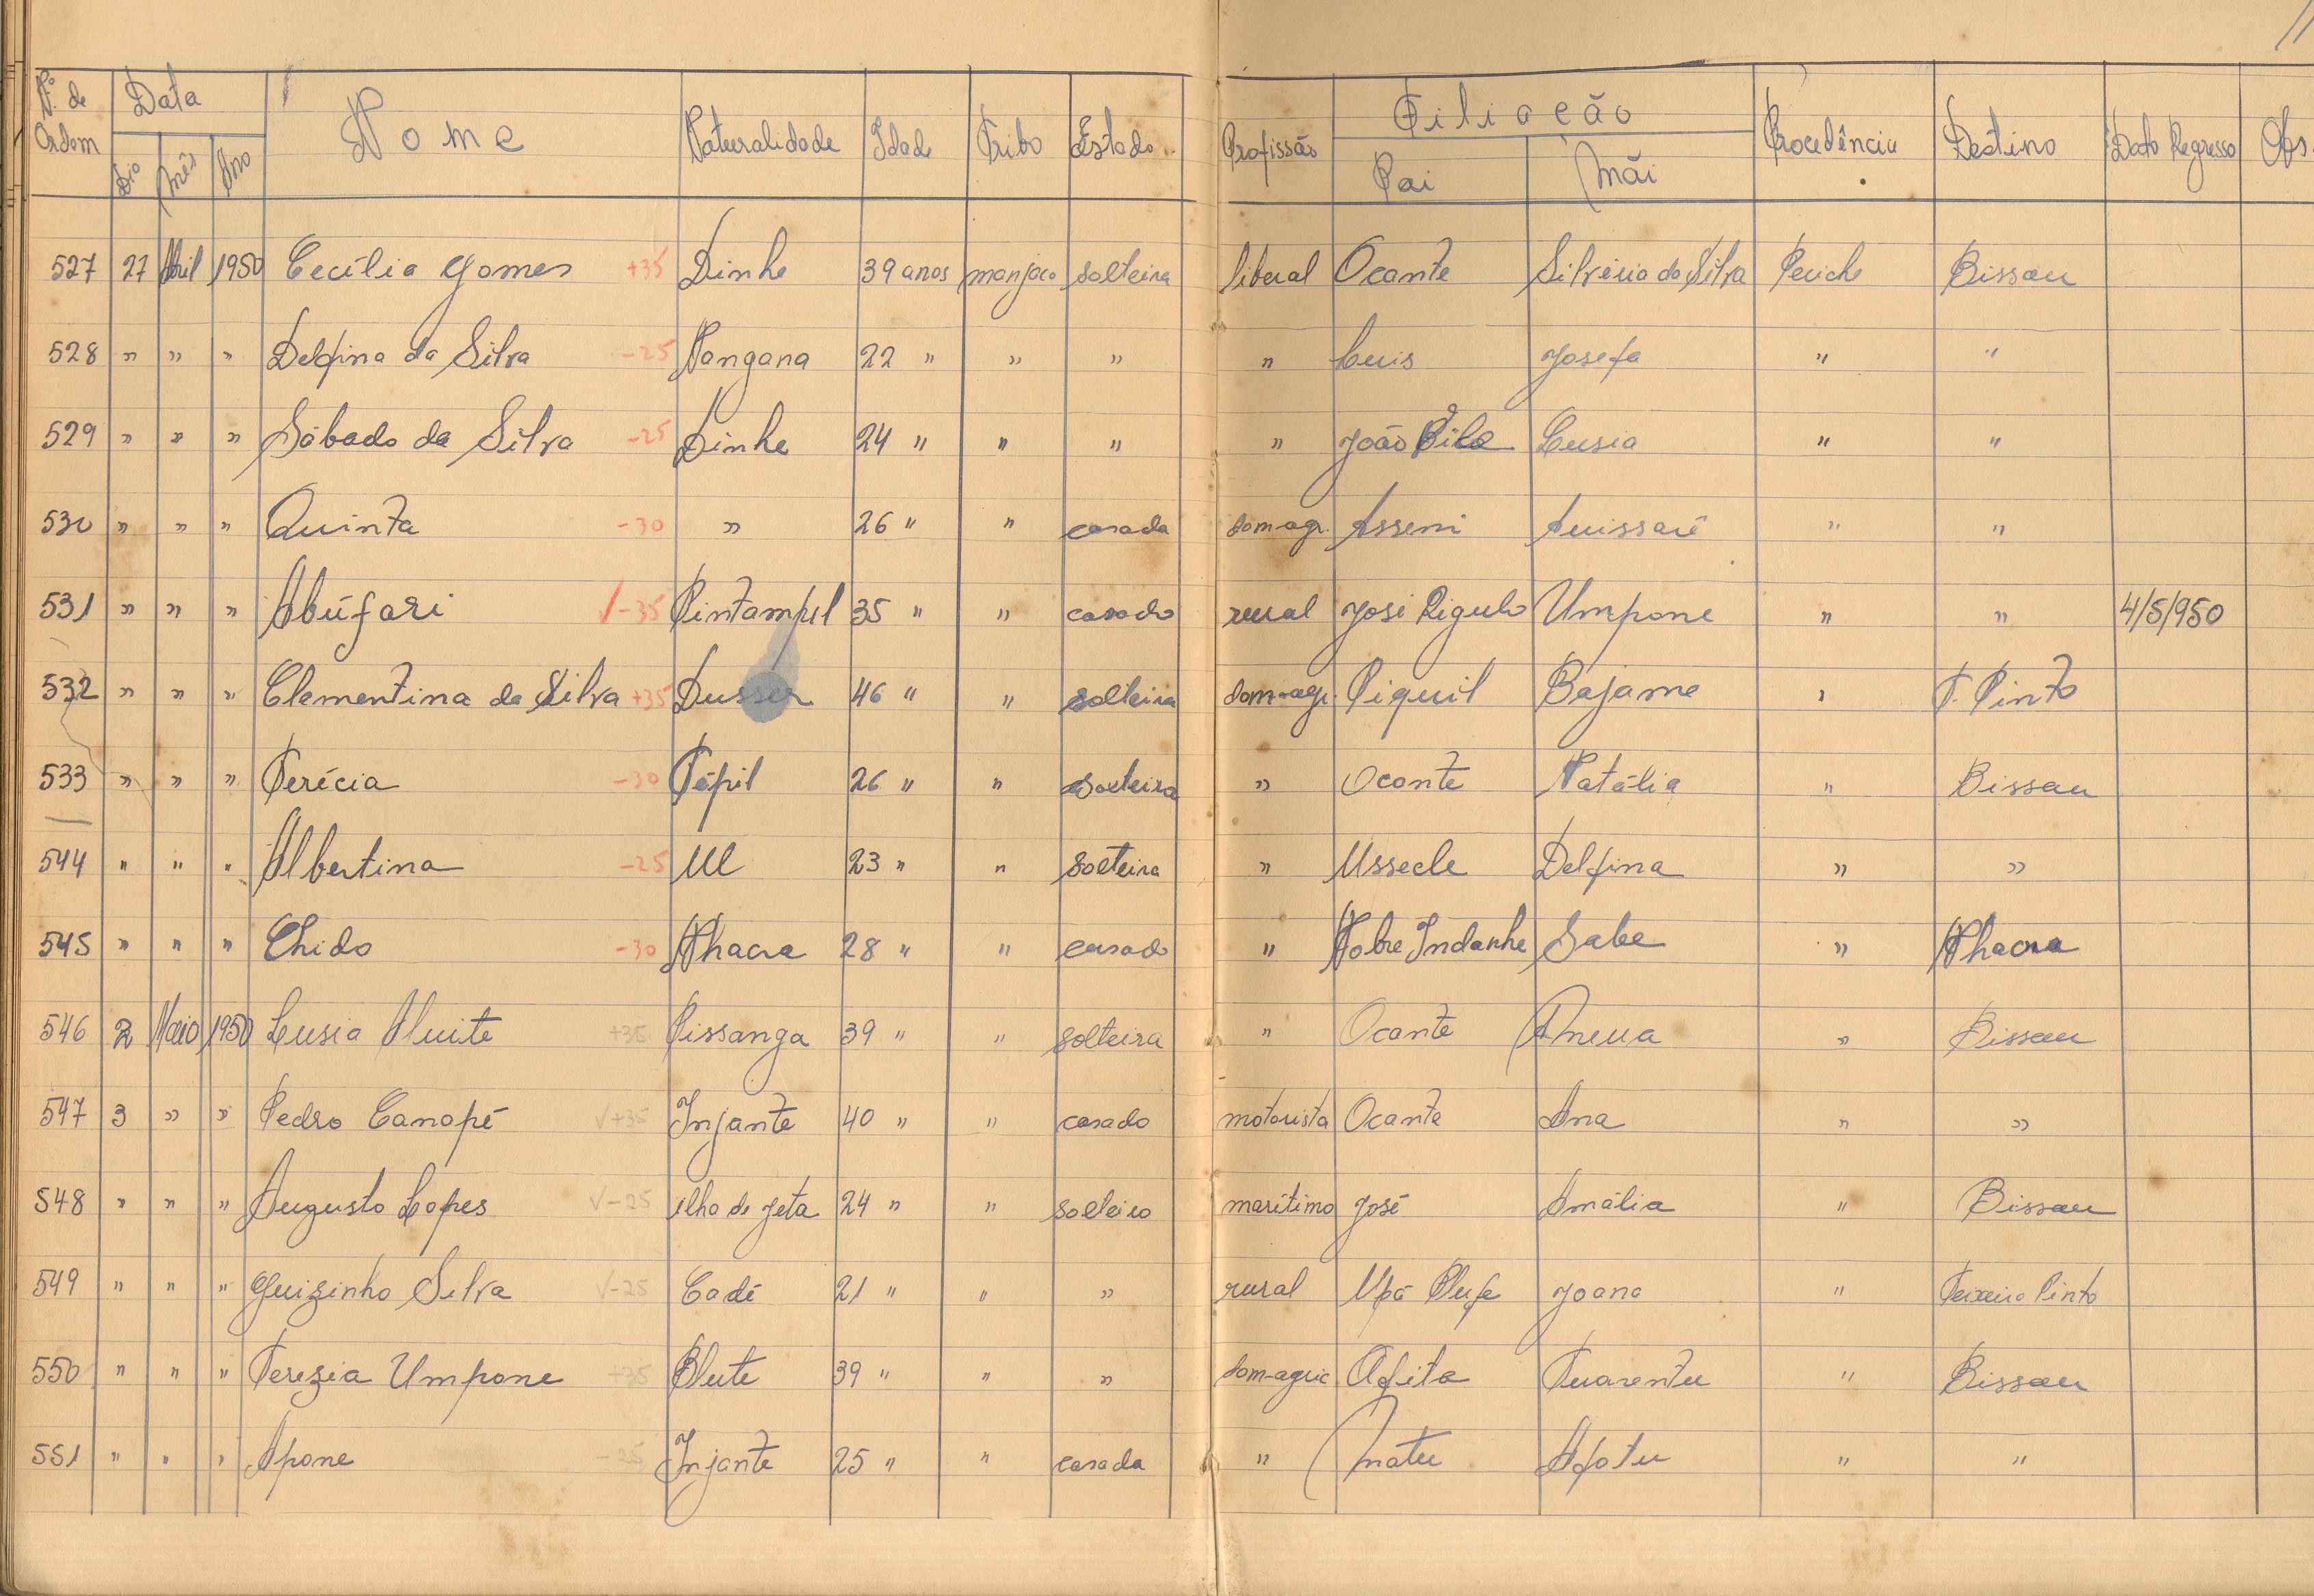 Nº de Ordem Data Nome Naturalidade Idade Tribo Estado Profissão Filiação Procedência Destino Data Regresso Obs.
Dia Mês Ano Pai Mãi
527 27 Abril 1950 Cecília Gomes +35 Dinhe 39 anos manjaco solteira liberal Ocante Silvéria da Silva Peciche Bissau
528 " " " Delfina da Silva -25 Nangana 22 " " " " Luis Josefa " "
529 " " " Sábado da Silva -25 Dinhe 24 " " " " João Lusia " "
530 " " " Quinta -30 " 26 " " casada dom-agr. Assem " "
531 " " " Abúfari √-35 Pintampil 35 " " casado rural José Umpone " " 4/5/950
532 " " " Clementina da Silva +35 46 " " solteira dom-agr. Piquil Bajame " T. Pinto
533 " " " Terécia -30 Tépil 26 " " solteira " Ocante Natália " Bissau
544 " " " Albertina -25 23 " " solteira " Ussecle Delfina " "
545 " " " Chido -30 28 " " casado " Nobre Indanhe Sabe "
546 2 Maio 1950 Lusia +35 Pissanga 39 " " solteira " Ocante " Bissau
547 3 " " Pedro Canapé √+35 Injante 40 " " casado motorista Ocante Ana " "
548 " " " Augusto Lopes √-25 ilha de Jeta 24 " " solteiro marítimo José Amália " Bissau
549 " " " Guizinho Silva √-25 Cadé 21 " " " rural Upá Joana " Teixeira Pinto
550 " " " Terezia Umpone +35 39 " " " dom-agric Afita Tuarentu " Bissau
551 " " " Apone -25 Injante 25 " " casada " Matu Afatu " "